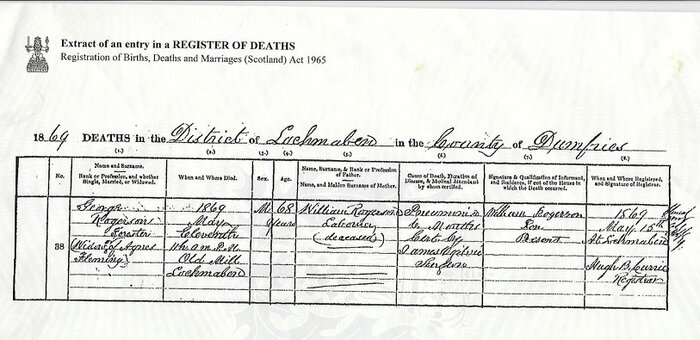 Extract of an entry in a REGISTER OF DEATHS
Registration of Births, Deaths and Marriages (Scotland) Act 1965
1869 DEATHS in the District of Lochmaben in the County of Dumfries
(1.) (2.) (3.) (4.) (5.) (6.) (7.) (8.)
No.
Name and Surname.
Rank or Profession, and whether
Single, Married, or Widowed.
When and Where Died.
Sex.
Age.
Name, Surname, & Rank or Profession
of Father.
Name, and Maiden Surname of Mother.
Cause of Death, Duration of
Disease, & Medical Attendant
by whom certified.
Signature & Qualification of Informant,
and Residence, if out of the House in
which the Death occurred.
When and Where Registered,
and Signature of Registrar.
38
George
Rogerson
Forester
Widow of Agnes
Fleming
1869
May
Eleventh
M.
Old Mill
Lochmaben
M.
68
years
William Rogerson
Labourer
(deceased)
Pneumonia
Months
Cert by
James
Surgeon
William Rogerson
Son
Present
1869
May 15th
At Lochmaben
Hugh B. Currie
Registrar